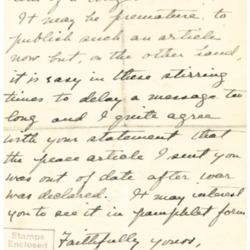 It may be premature, to
publish such an article
now but, on the other hand,
it is easy in these stirring
times to delay a message too
long and I quite agree
with your statement that
the peace article I sent you
was out of date after war
was declared. It may interest
you to see it in pamphlet form
Faithfully yours,
Stamps
Enclosed